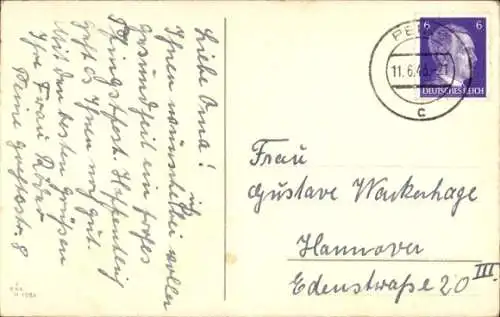 Liebe Oma!
Ihnen wünsche ich bei voller
Gesundheit ein frohes
Pfingstfest. Hoffentlich
geht es Ihnen noch gut.
Mit den besten Grüßen
Ihre Frau
Peine
8
PEINE
11.6.43.-21
c
6 6
DEUTSCHES REICH
Frau
Gustave Wackerhage
Hannover
Edenstraße 20 III.